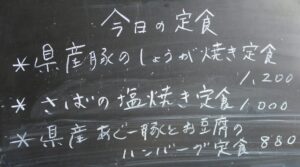 今日の定食
*県産豚のしょうが焼き定食
1,200
*さばの塩焼き定食 1,000
*県産あぐー豚とお豆腐の
ハンバーグ定食 880